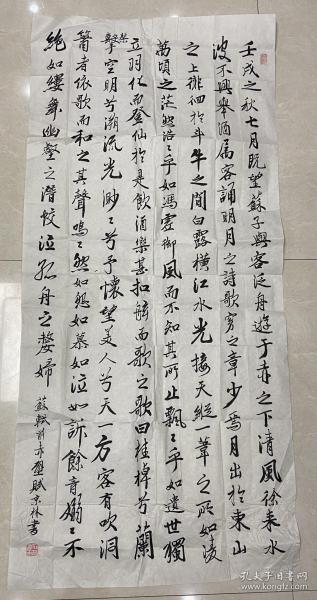 壬戌之秋七月既望蘇子與客泛舟遊于赤之下清風徐来水
波不興舉酒属客誦明月之詩歌窈之章少焉月出於東山
之上徘徊於斗牛之間白露横江水光接天縱一葦之所如淩
萬頃之茫然浩々乎如馮虚御風而不知其所止飄々乎如遺世獨
立羽化而登仙於是飲酒樂甚扣舷而歌之歌曰桂棹兮蘭
槳擊空明兮溯流光渺々兮予懷望美人兮天一方客有吹洞
簫者依歌而和之其聲鳴々然如怨如慕如泣如訴餘音嫋々不
絶如縷舞幽壑之潛蛟泣孤舟之嫠婦
蘇軾前赤壁賦京林書
孔夫子旧书网